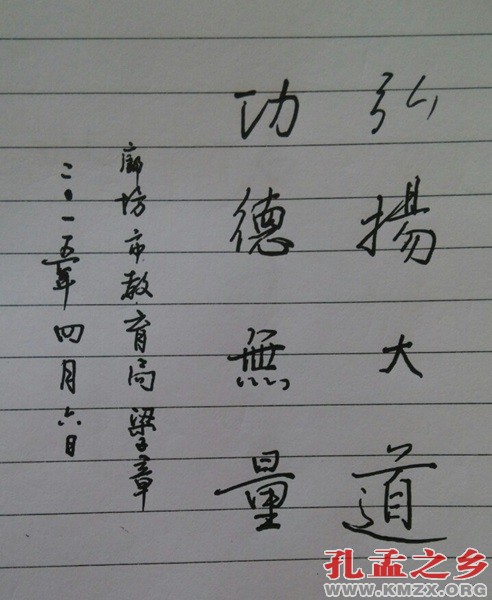 弘揚大道
功德無量
廊坊市教育局梁子章
二〇一五年四月六日
孔孟之乡
WWW.KMZX.ORG